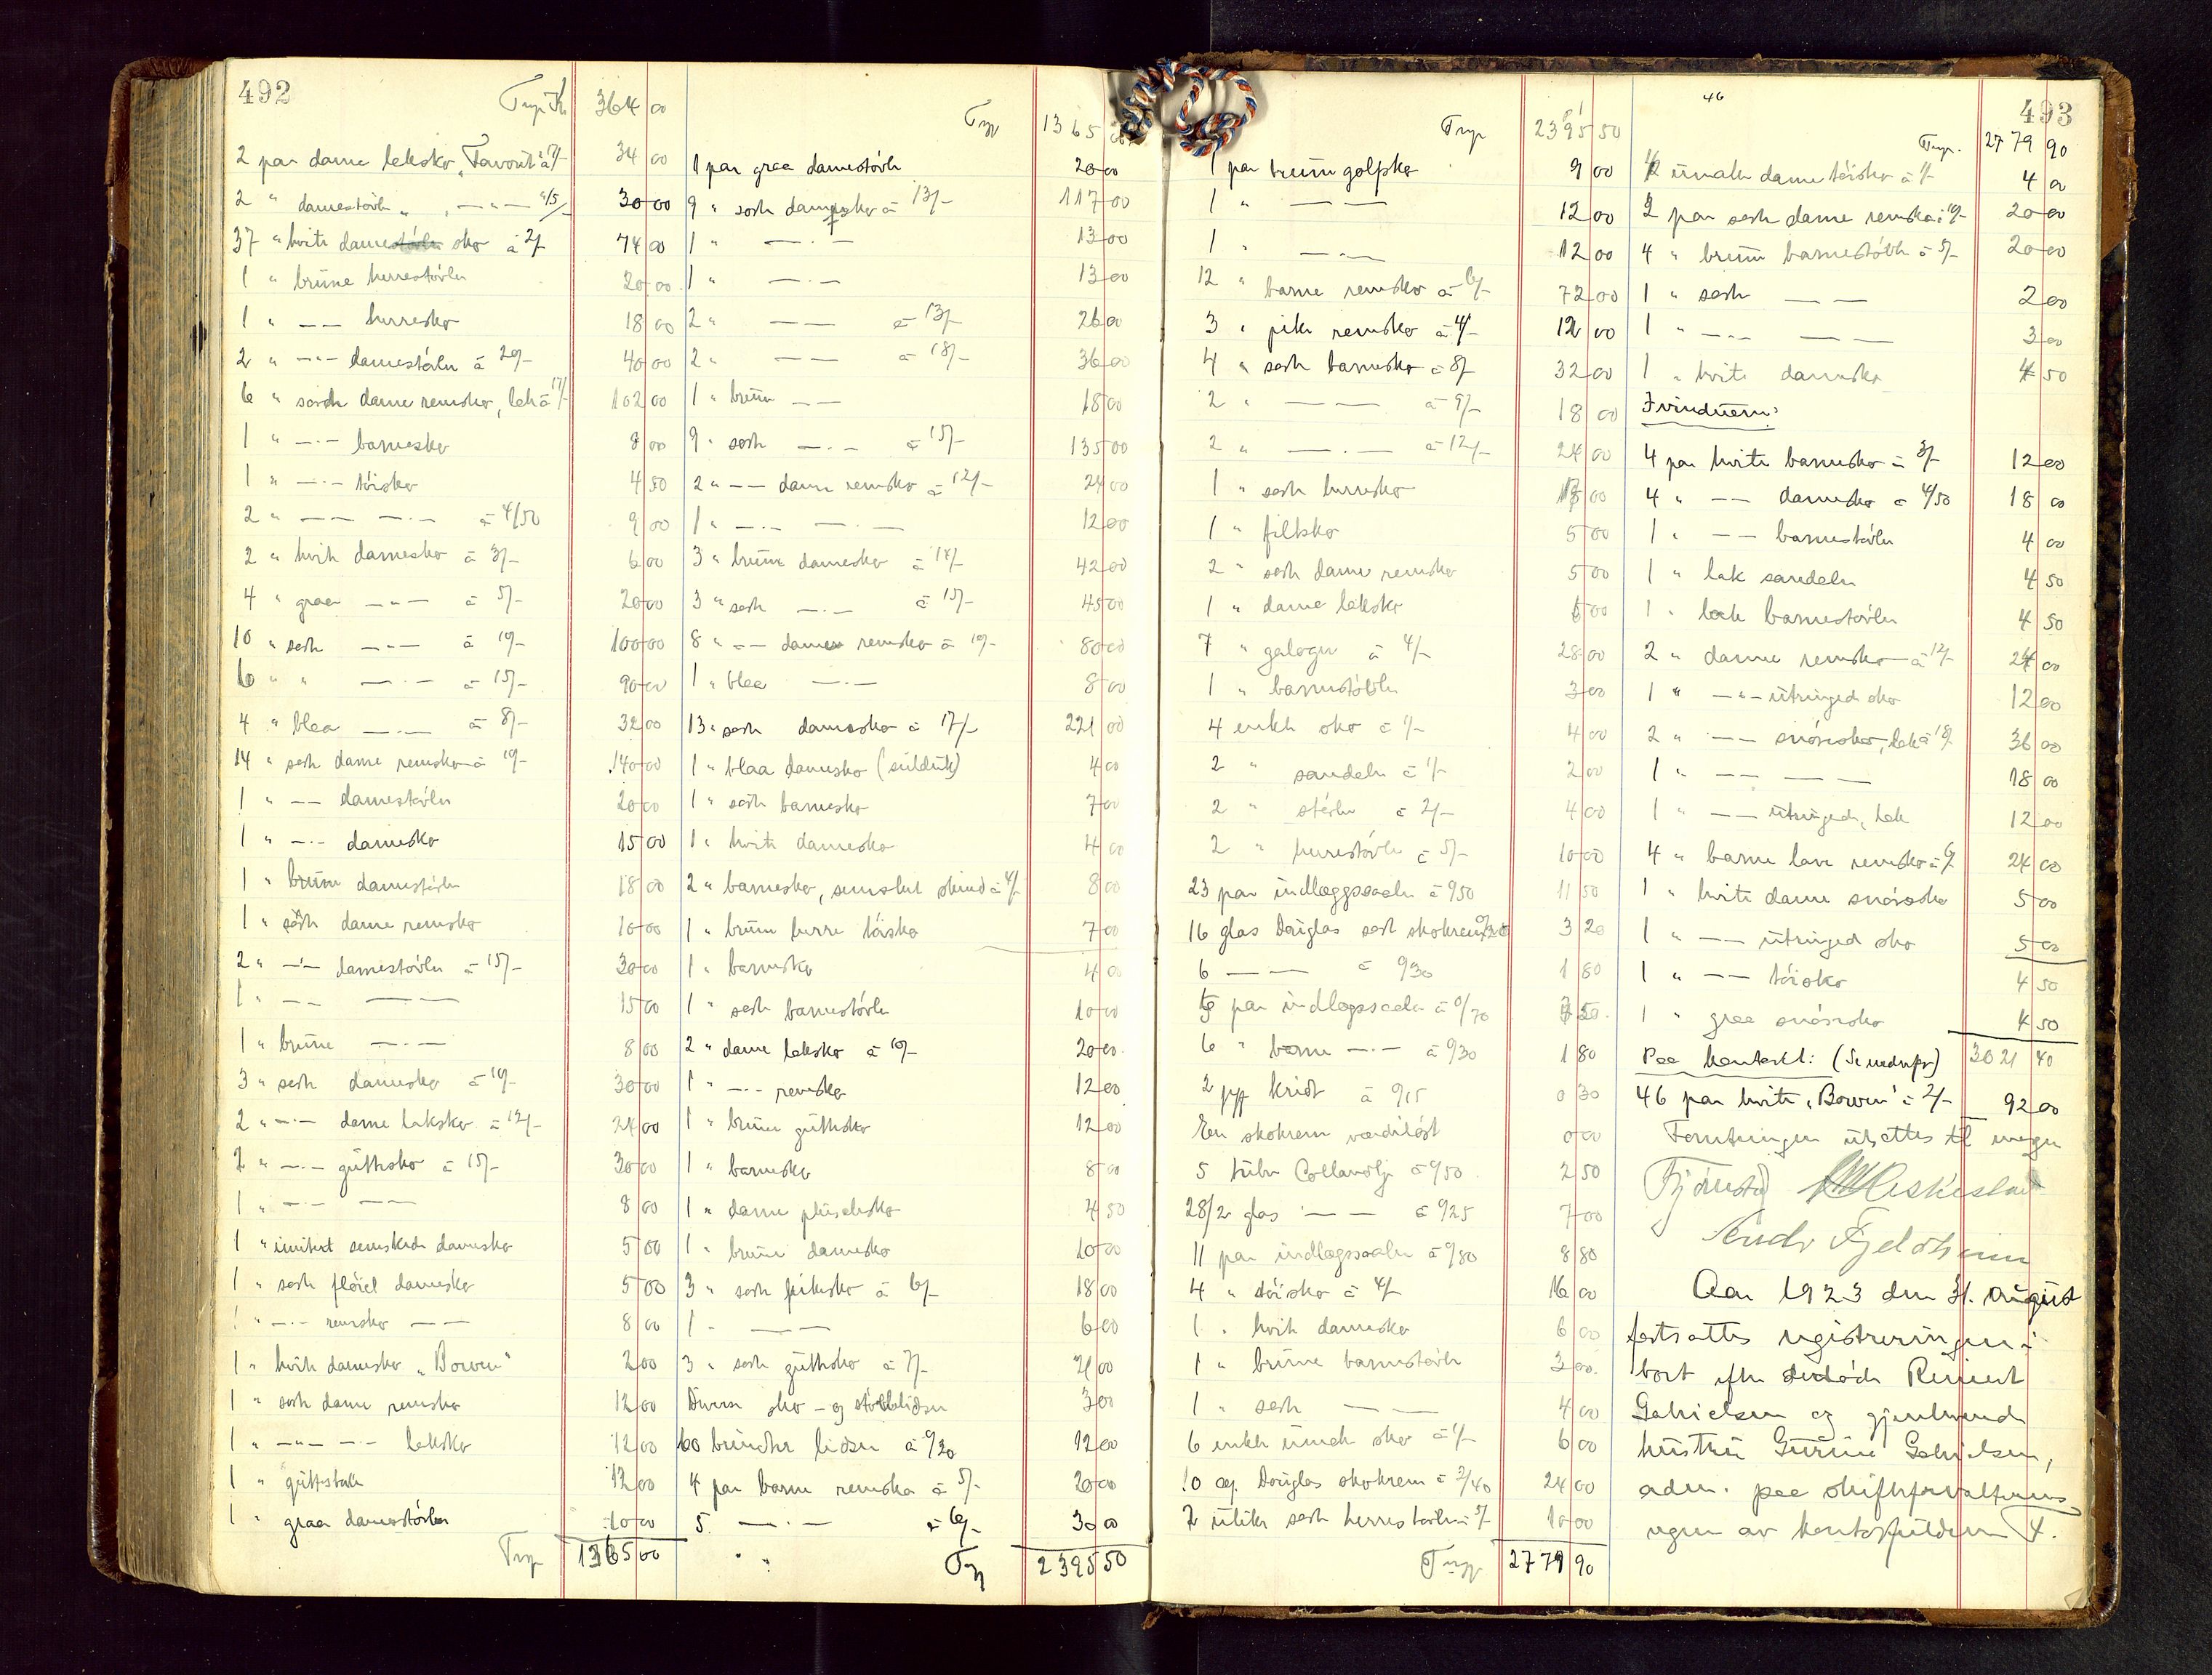 492
Trsp. Kr. 364 00
2 par dame laksko „Favorit" à 17/- 34 00
2 " damestövle „ — " — " 15/- 30 00
37 " hvite dame sko à 2/- 74 00
1 " brune herrestövler 20 00
1 " — — herresko 18 00
2 " — " — damestövler à 20/- 40 00
6 " sorte dame remsko, lak à 17/- 102 00
1 " — " — barnesko 8 00
1 " — " — töisko 4 50
2 " — — — " — à 4/50 9 00
2 " hvite damesko à 3/- 6 00
4 " graa — " — à 5/- 20 00
10 " sorte — " — à 10/- 100 00
6 " " — " — à 15/- 90 00
4 " blaa — " — à 8/- 32 00
14 " sorte dame remsko à 10/- 140 00
1 " — — damestövler 20 00
1 " — " — damesko 15 00
1 " brune damestövler 18 00
1 " sorte dame remsko 10 00
2 " — " — damestövler à 15/- 30 00
1 " — — — — 15 00
1 " brune — " — 8 00
3 " sorte damesko à 10/- 30 00
2 " — " — dame laksko à 12/- 24 00
2 " — " — guttesko à 15/- 30 00
1 " — " — — — 8 00
1 " imitert semskede damesko 5 00
1 " sorte flöiel damesko 5 00
1 " — " — remsko — — 8 00
1 " hvite damesko „Bowen" 2 00
1 " sorte dame remsko 12 00
1 " — " — — " — laksko 12 00
1 " guttestövle 12 00
1 " graa damestövler 10 00
Trsp 1365 00
Trsp 1365 00
1 par graa damestövle 20 00
9 " sorte damesko à 13/- 117 00
1 " — " — 13 00
1 " — " — 13 00
2 " — — à 13/- 26 00
2 " — — à 18/- 36 00
1 " brune — — 18 00
9 " sorte — " — à 15/- 135 00
2 " — — dame remsko à 12/- 24 00
1 " — " — — " — 12 00
3 " brune damesko à 14/- 42 00
3 " sorte — " — à 15/- 45 00
8 " — — dame remsko à 10/- 80 00
1 " blaa — " — 8 00
13 " sorte damesko à 17/- 221 00
1 " blaa damesko (seilduk) 4 00
1 " sorte barnesko 7 00
1 " hvite damesko 4 00
2 " barnesko, semsket skind à 4/- 8 00
1 " brune herre töisko 7 00
1 " barnesko 4 00
1 " sorte barnestövler 10 00
2 " dame laksko à 10/- 20 00
1 " — " — remsko 12 00
1 " brune guttesko 12 00
1 " barnesko 8 00
1 " dame plüschsko 4 50
1 " brune damesko 10 00
3 " sorte pikesko à 6/- 18 00
1 " — — 6 00
3 " sorte guttesko à 7/- 21 00
Diverse sko- og støvlelidser 3 00
60 bundter lidser à 0/20 12 00
4 par barne remsko à 5/- 20 00
5 — " — à 6/- 30 0
Trsp 2395 50
493
Trsp 2395 50
1 par brune golfsko 9 00
1 " — — 12 00
1 " — " — 12 00
12 " barne remsko à 6/- 72 00
3 " pike remsko à 4/- 12 00
4 " sorte barnesko à 8/- 32 00
2 " — — à 9/- 18 00
2 " — " — à 12/- 24 00
1 " sorte herresko 00
1 " filtsko 5 00
2 " sorte dame remsko 5 00
1 " dame laksko 5 00
7 " galoger à 4/- 28 00
1 " barnestövler 3 00
4 enkle sko à 1/- 4 00
2 " sandaler à 1/- 2 00
2 " støvler à 2/- 4 00
2 " herrestövle à 5/- 10 00
23 par indlæggssaaler à 0/50 11 50
16 glas Douglas sort skokrem 0/20 3 20
6 — — à 0/30 1 80
par indlægssaaler à 0/70
6 " barne — " — à 0/30 1 80
2 pp kridt à 0/15 0 30
En skokrem værdiløst 0 00
5 tuber Collanolje à 0/50 2 50
28/2 glas — — à 0/25 7 00
11 par indlægssaaler à 0/80 8 80
4 " töisko à 4/- 16 00
1 " hvite damesko 6 00
1 " brune barnestövle 3 00
1 " sorte — — 4 00
6 enkle umake sko à 1/- 6 00
10 æ. Douglas skokrem à 2/40 24 00
2 ulike sorte herrestövler à 5/- 10 00
Trsp 2779 90
46
Trsp. 2779 90
umake dame töisko à 1/- 4 00
2 par sorte dame remsko à 10/- 20 00
4 " brune barnestövle à 5/- 20 00
1 " sorte — — 2 00
1 " — " — — — 3 00
1 " hvite damesko 4 50
I vinduerne:
4 par hvite barnesko à 3/- 12 00
4 " — — damesko à 4/50 18 00
1 " — — barnestövler 4 00
1 " lak sandaler 4 50
1 " lak barnestövler 4 50
2 " dame remsko à 12/- 24 00
1 " — " — utringed sko 12 00
2 " — — snöresko, lak à 18/- 36 00
1 " — — — — 18 00
1 " — — utringed, lak 12 00
4 " barne lave remsko à 6/- 24 00
1 " hvite dame snöresko 5 00
1 " — — utringed sko 5 00
1 " — — töisko 4 50
1 " graa snöresko 4 50
3021 40
Paa kontoret:
46 par hvite „Bowen" à 2/- 92 00
Forretningen utsettes til imorgen
Aar 1923 den 31. august
fortsattes registreringen i
bort efter avdöde Reinert
Gabrielsen og gjenlevende
hustru Gurine Gabrielsen,
adm. paa skifteforvalterens
vegne av kontorfuldm. F.